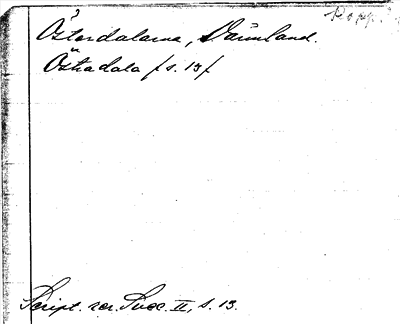 Kopp.
Österdalarna, Värmland.
Östradala /s. 13/
Script. rer. Svec. II, s. 13.